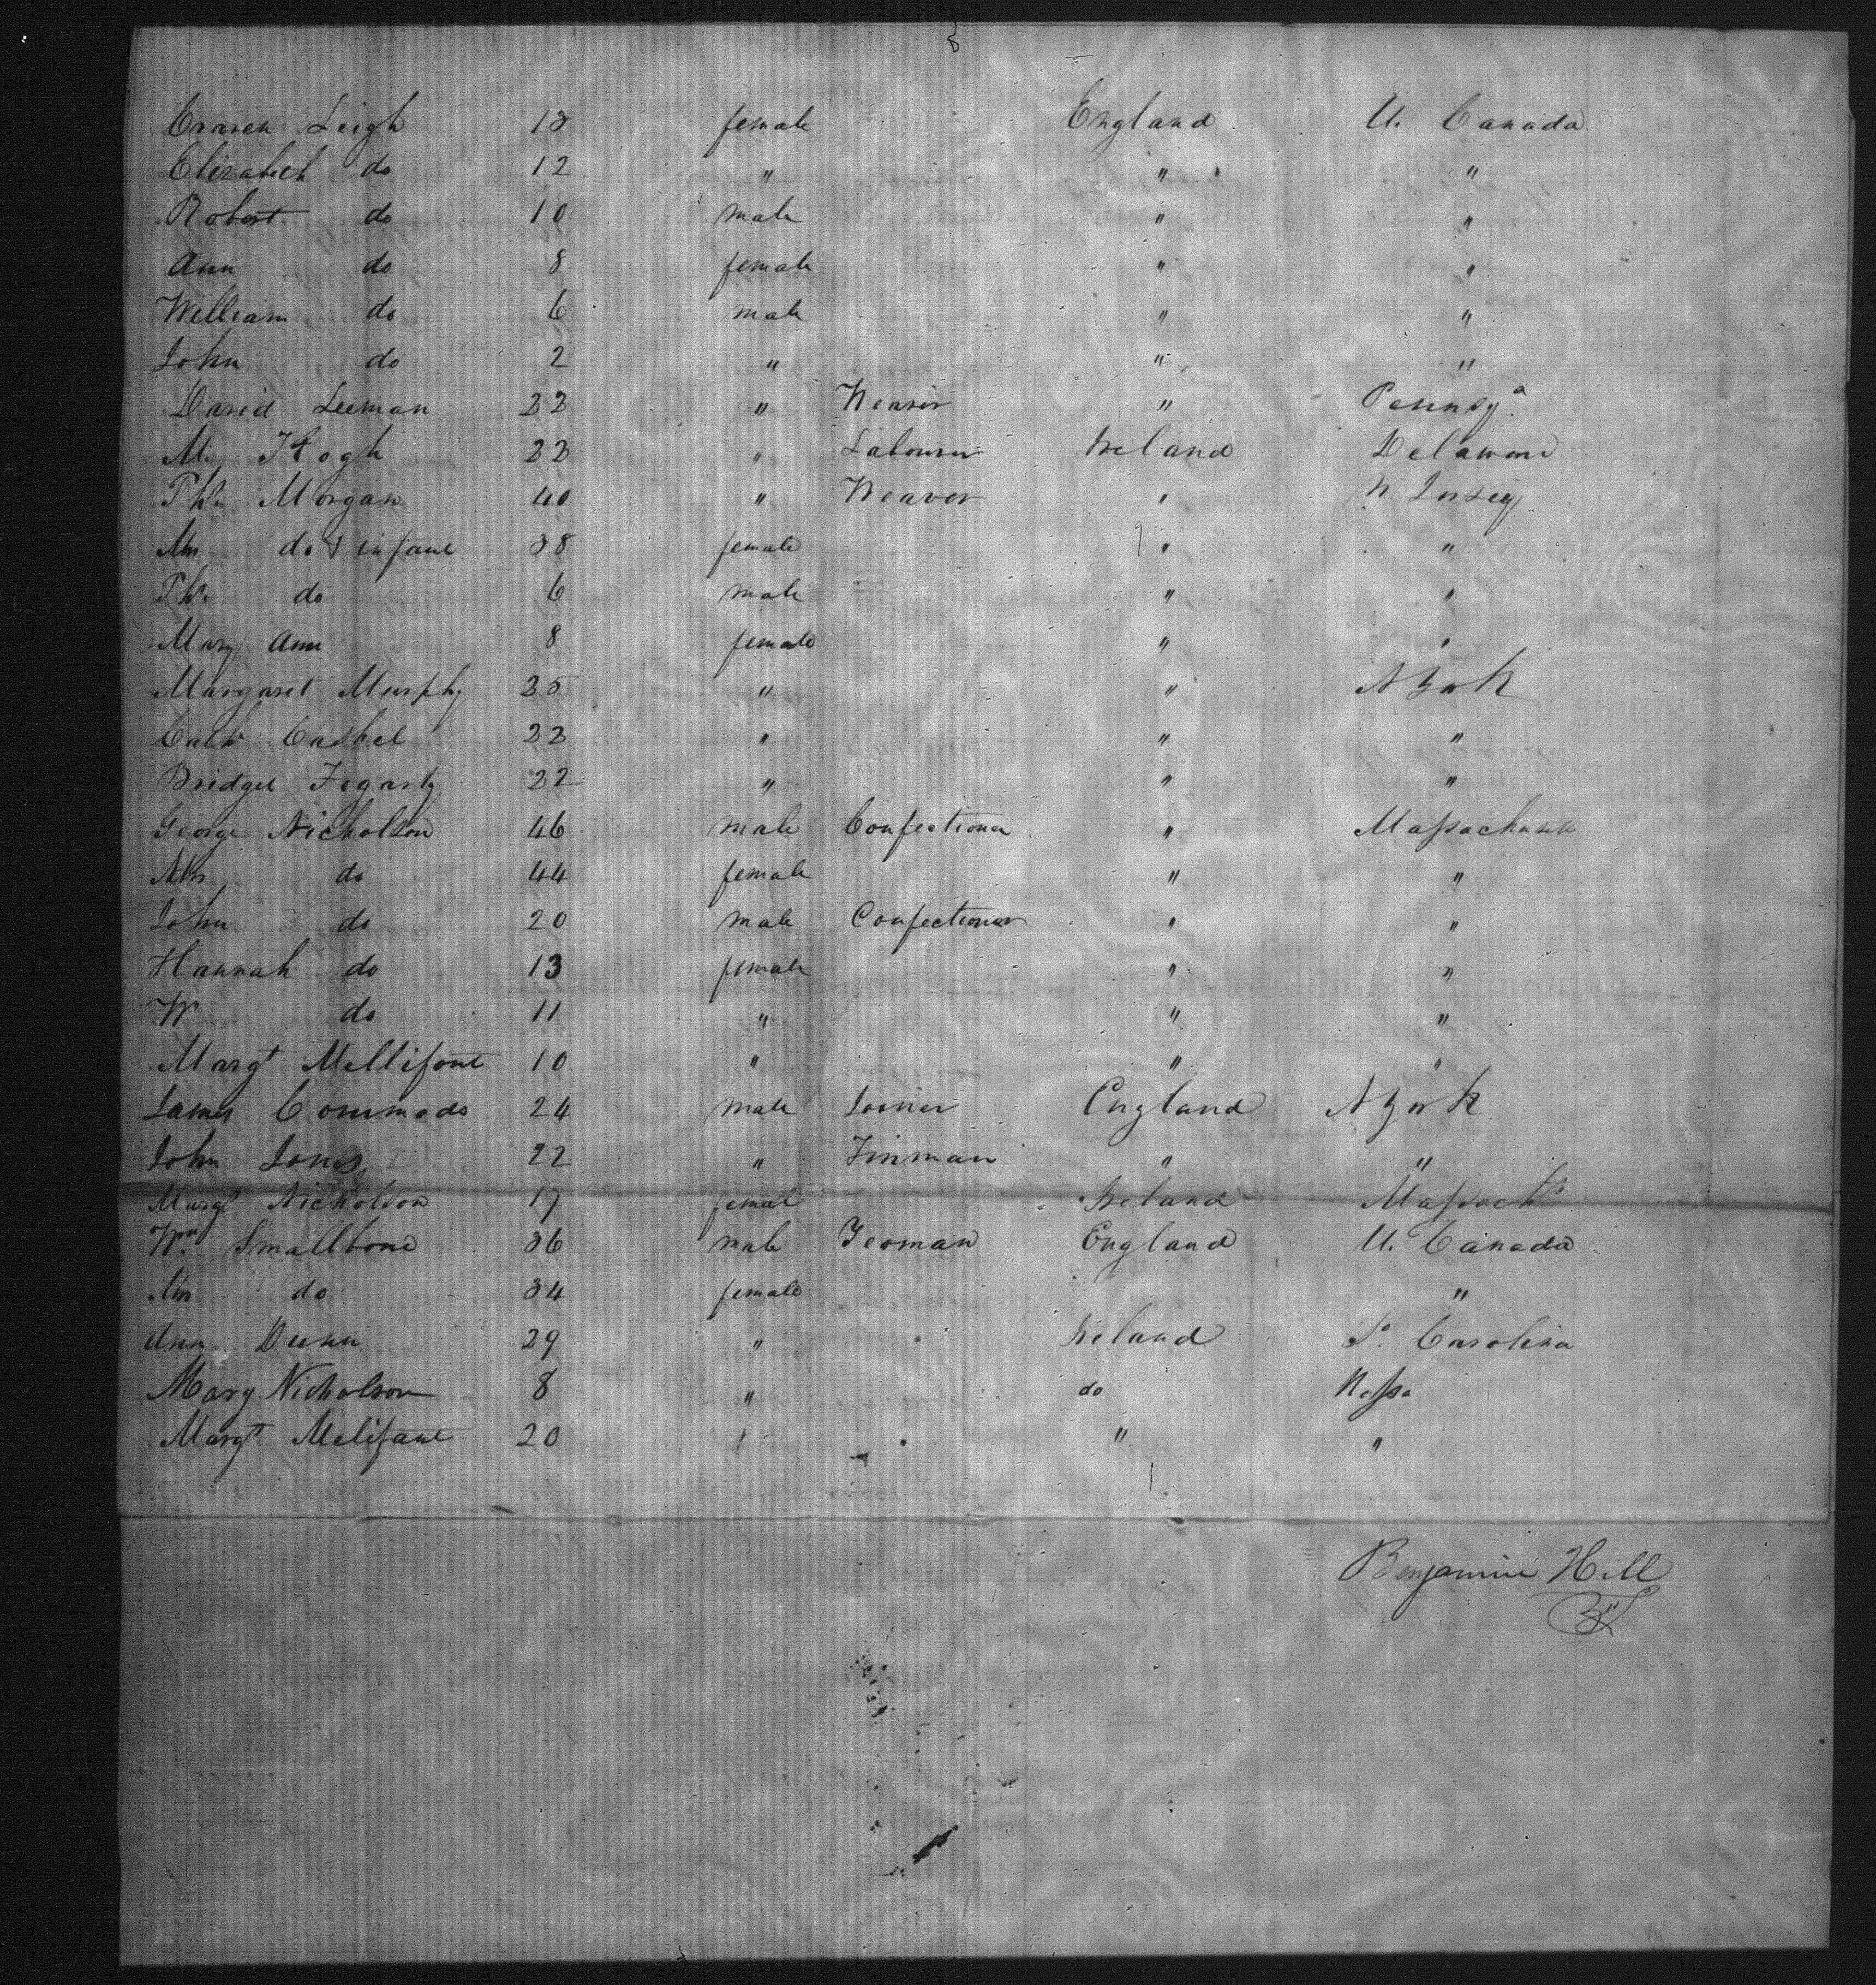 Leigh 13 female England U. Canada
Elizabeth do 12 " " "
Robert do 10 male " "
Ann do 8 female " "
William do 6 male " "
John do 2 " " "
David Leeman 22 " Weaver " Pennsya
M. Kogh 22 " Labourer Ireland Delaware
Ths. Morgan 40 " Weaver " N. Jersey
Mrs do & infant 38 female " "
Ths. do 6 male " "
Mary Ann 8 female " "
Margaret Murphy 25 " " N York
Cath Cashel 22 " " "
Bridget Fogarty 22 " " "
George Nicholson 46 male Confectioner " Massachusetts
Mrs do 44 female " "
John do 20 male Confectioner " "
Hannah do 13 female " "
W do 11 " " "
Margt Mellifont 10 " " "
James 24 male Joiner England N York
John Jones 22 " Tinman " "
Margt Nicholson 17 female Ireland Massachts
Wm. Smallbone 36 male Yeoman England U. Canada
Mrs do 34 female "
Ann Dunn 29 " Ireland So. Carolina
Mary Nicholson 8 " do Massa
Margt Melifant 20 " " "
Benjamin Hill